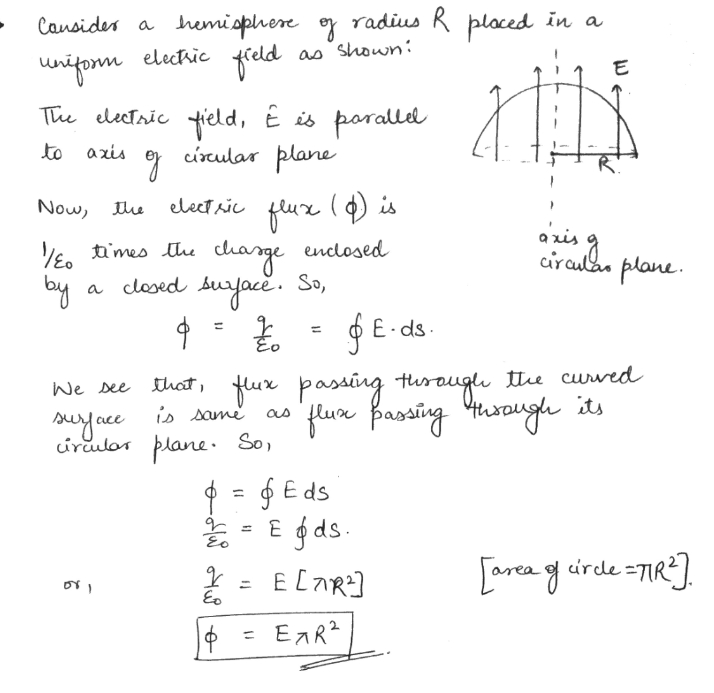 Consider a hemisphere of radius R placed in a
uniform electric field as shown:
E
The electric field, Ē is parallel
to axis of circular plane
R
axis of
circular plane.
Now, the electric flux (ϕ) is
1/ε₀ times the charge enclosed
by a closed surface. So,
ϕ = q/ε₀ = ∮ E·ds.
We see that, flux passing through the curved
surface is same as flux passing through its
circular plane. So,
ϕ = ∮ E ds
q/ε₀ = E ∮ ds.
or, q/ε₀ = E [πR²] [area of circle = πR²].
ϕ = EπR²